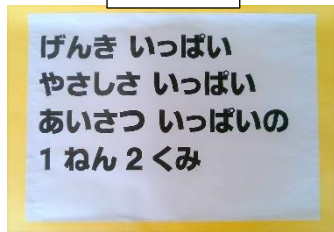 げんき いっぱい
やさしさ いっぱい
あいさつ いっぱいの
1 ねん 2 くみ